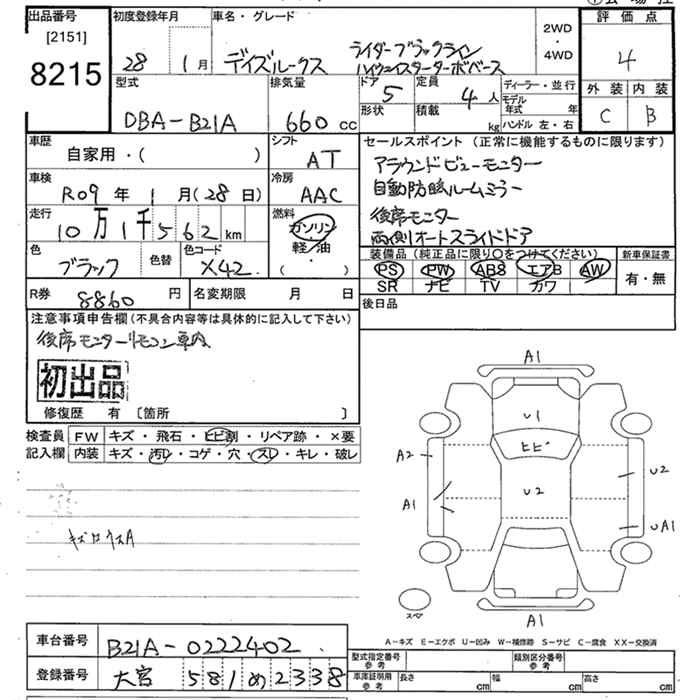 出品番号
[2151]
8215
初度登録年月
28 1月
車名・グレード
デイズルークス
ライダーブラックライン
ハイウェイスターターボベース
2WD
・
4WD
評価点
4
外装 内装
C B
型式
DBA-B21A
排気量
660 cc
ドア
5
形状
定員
4 人
積載
kg
ディーラー・並行
モデル
年式 年
ハンドル 左・右
車歴
自家用・( )
シフト
AT
車検
R09 年 1 月(28 日)
冷房
AAC
走行
10万1千562 km
燃料
ガソリン
軽・油
・
( )
色
ブラック
色替
色コード
X42
セールスポイント(正常に機能するものに限ります)
アラウンドビューモニター
自動防眩ルームミラー
後席モニター
両側オートスライドドア
装備品(純正品に限り○をつけてください)
PS PW ABS エアB AW
SR ナビ TV カワ
新車保証書
有・無
R券
8860 円
名変期限 月 日
後日品
注意事項申告欄(不具合内容等は具体的に記入して下さい)
後席モニターリモコン車内
初出品
修復歴 有 〔箇所 〕
検査員
記入欄
FW キズ・飛石・ヒビ割・リペア跡・×要
内装 キズ・汚レ・コゲ・穴・スレ・キレ・破レ
A1
U1
ヒビ
A2
U2
U2
A1
UA1
スペア
A1
A-キズ E-エクボ U-凹み W-補修跡 S-サビ C-腐食 XX-交換済
車台番号
B21A-0222402
登録番号
大宮 581 め 2338
型式指定番号
参考
類別区分番号
参考
車庫証明用
参考
長さ cm
幅 cm
高さ cm